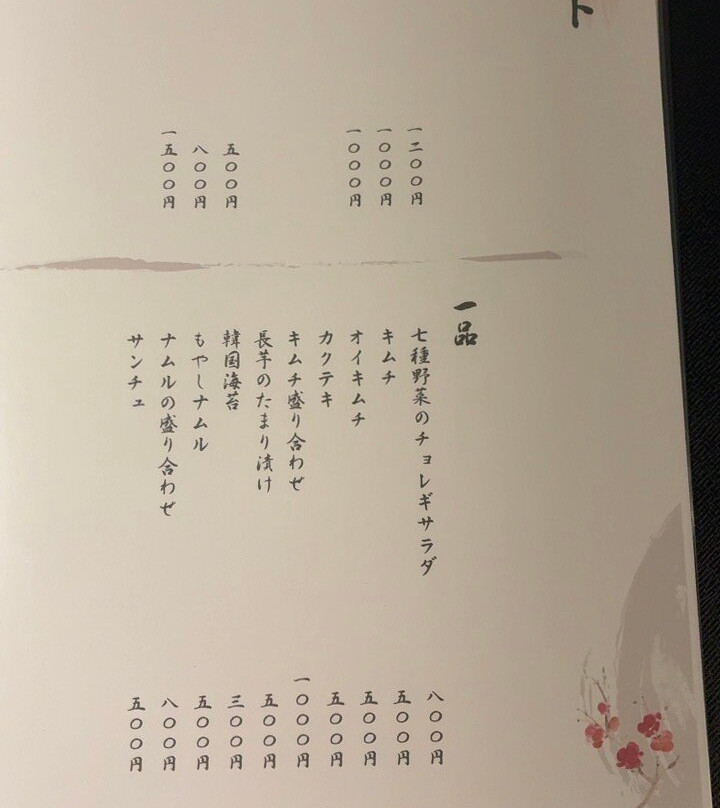 ト
一二〇〇円
一〇〇〇円
一〇〇〇円
五〇〇円
八〇〇円
一五〇〇円
一品
七種野菜のチョレギサラダ 八〇〇円
キムチ 五〇〇円
オイキムチ 五〇〇円
カクテキ 五〇〇円
キムチ盛り合わせ 一〇〇〇円
長芋のたまり漬け 五〇〇円
韓国海苔 三〇〇円
もやしナムル 五〇〇円
ナムルの盛り合わせ 八〇〇円
サンチュ 五〇〇円